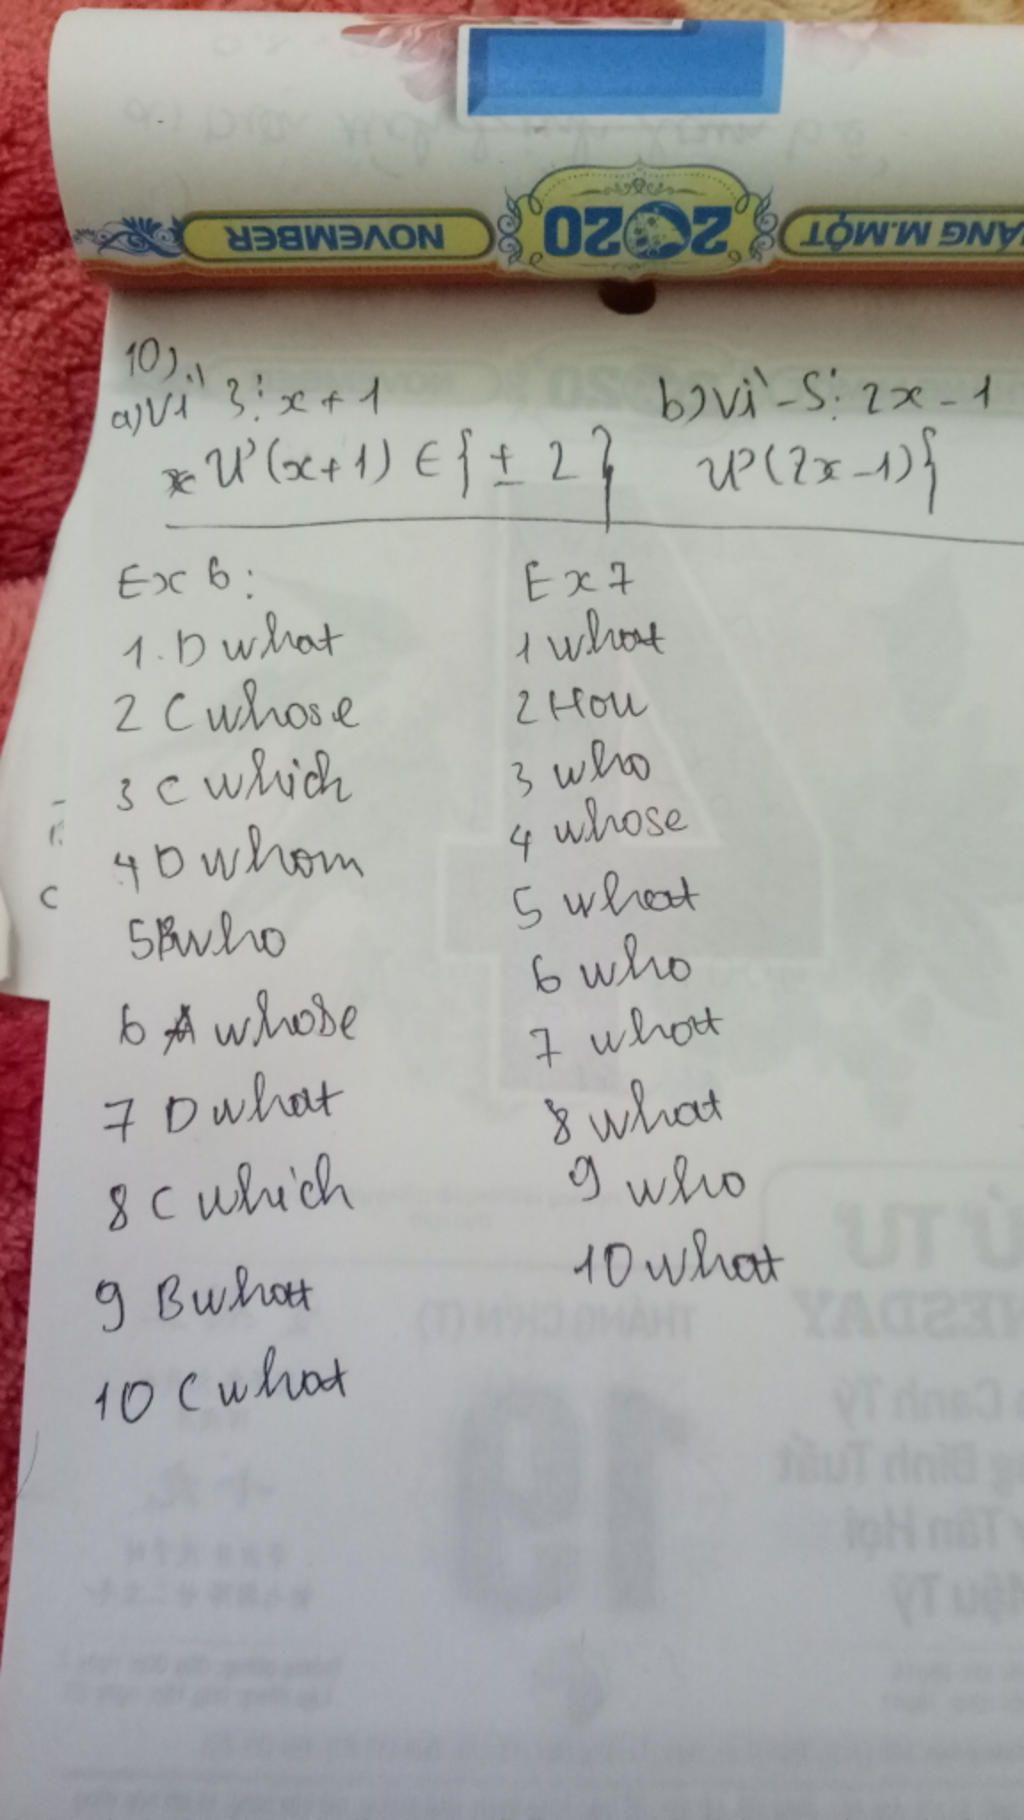 NOVEMBER
2020
ÁNG M.MỘT
10)
a) Vì 3 ⋮ x + 1
b) Vì -5 ⋮ 2x - 1
Ư(x+1) ∈ { ± 2 }
Ư(2x-1) {
Ex 6:
1. D what
2 C whose
3 C which
4 D whom
5 B who
6 A whose
7 D what
8 C which
9 B what
10 C what
Ex 7
1 what
2 How
3 who
4 whose
5 what
6 who
7 what
8 what
9 who
10 what
C
Ứ TƯ
NESDAY
THÁNG CHÍN (T)
19
Canh Tý
Bính Tuất
Tân Hợi
Mậu Tý